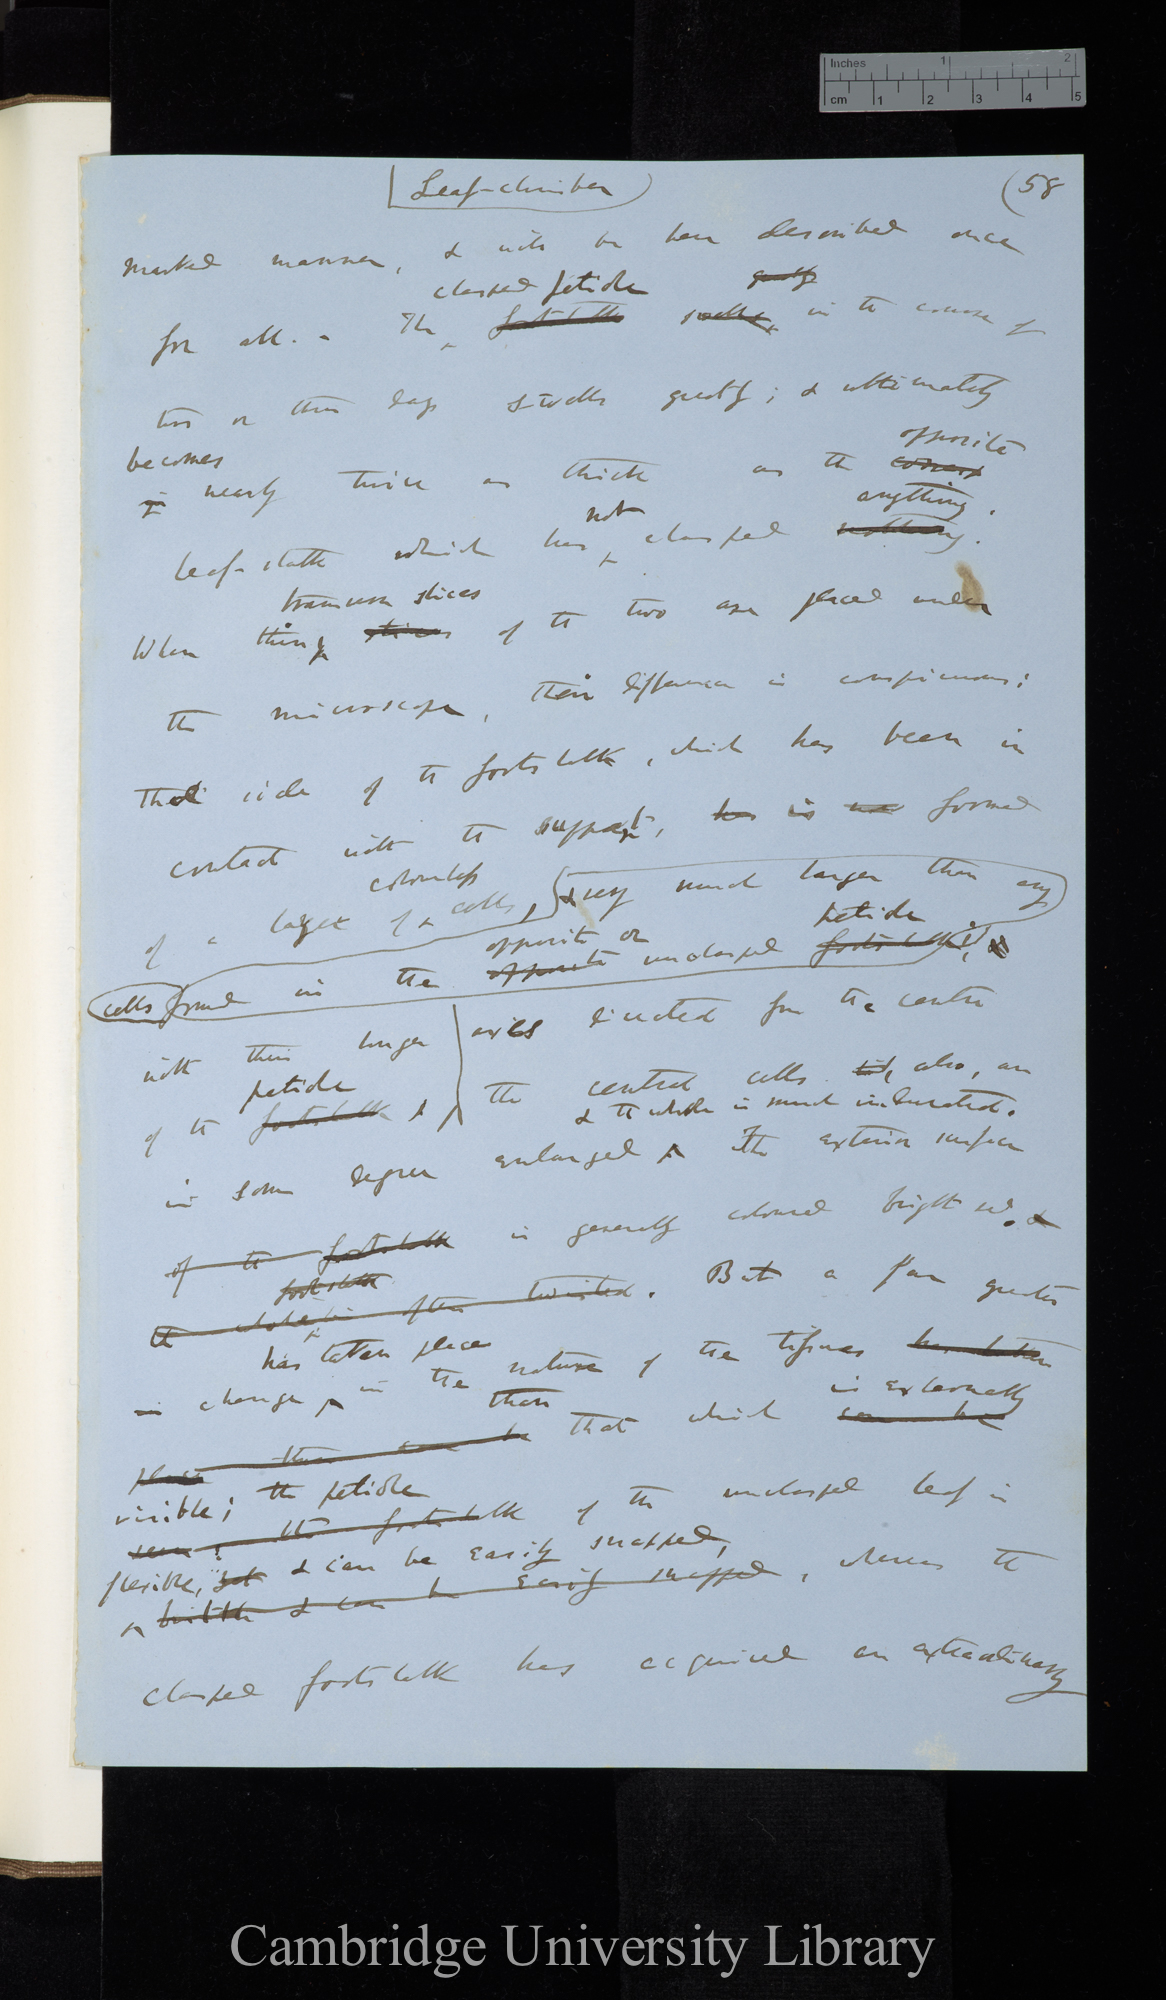 Inches 1 2
cm 1 2 3 4 5
Leaf-climber (58
marked manner, & will be here described once
clasped petiole greatly
for all. - The footstalk swells, in the course of
two or three days swells greatly; & ultimately
becomes opposite
is nearly twice as thick as the
not anything.
leaf-stalk which has clasped nothing.
transverse slices
When thin slices of the two are placed under
the microscope, their difference is conspicuous:
The side of the footstalk, which has been in
contact with the support, has is formed
colourless
of a layer of cells, & very much larger than any
opposite or petiole
cells found in the opposite unclasped footstalk,
with their longer axes directed from the centre
petiole
of the footstalk; The central cells also, are
& the whole is much indurated.
in some degree enlarged The exterior surface
of the footstalk is generally coloured bright red. &
footstalk
the whole is often twisted. But a far greater
has taken place
is change in the nature of the tissues has taken
than is externally
place than can be that which can be
visible; the petiole
seen: the footstalk of the unclasped leaf is
flexible, & can be easily snapped,
brittle & can be easily snapped, whereas the
clasped footstalk has acquired an extraordinary
Cambridge University Library